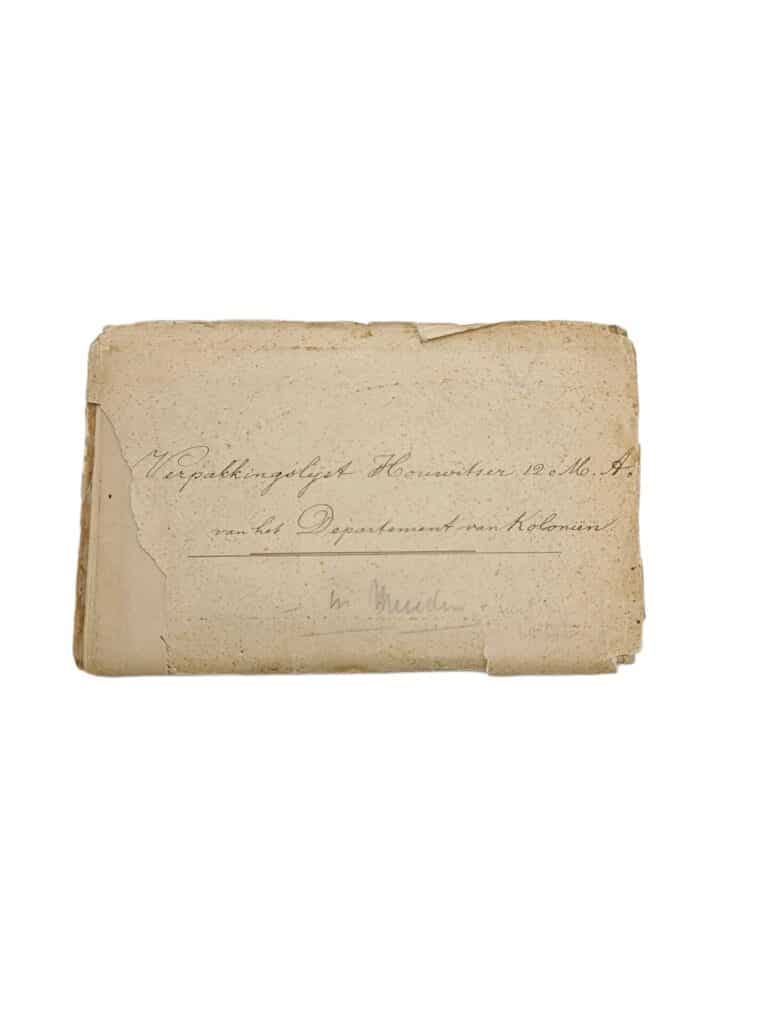 Verpakkingslijst Houwitser 12 c M. A.
van het Departement van Koloniën